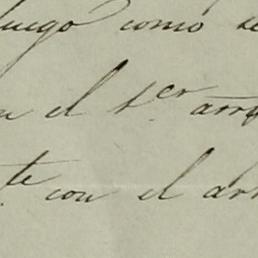 luego como se
el 1.er arr
te con el ar